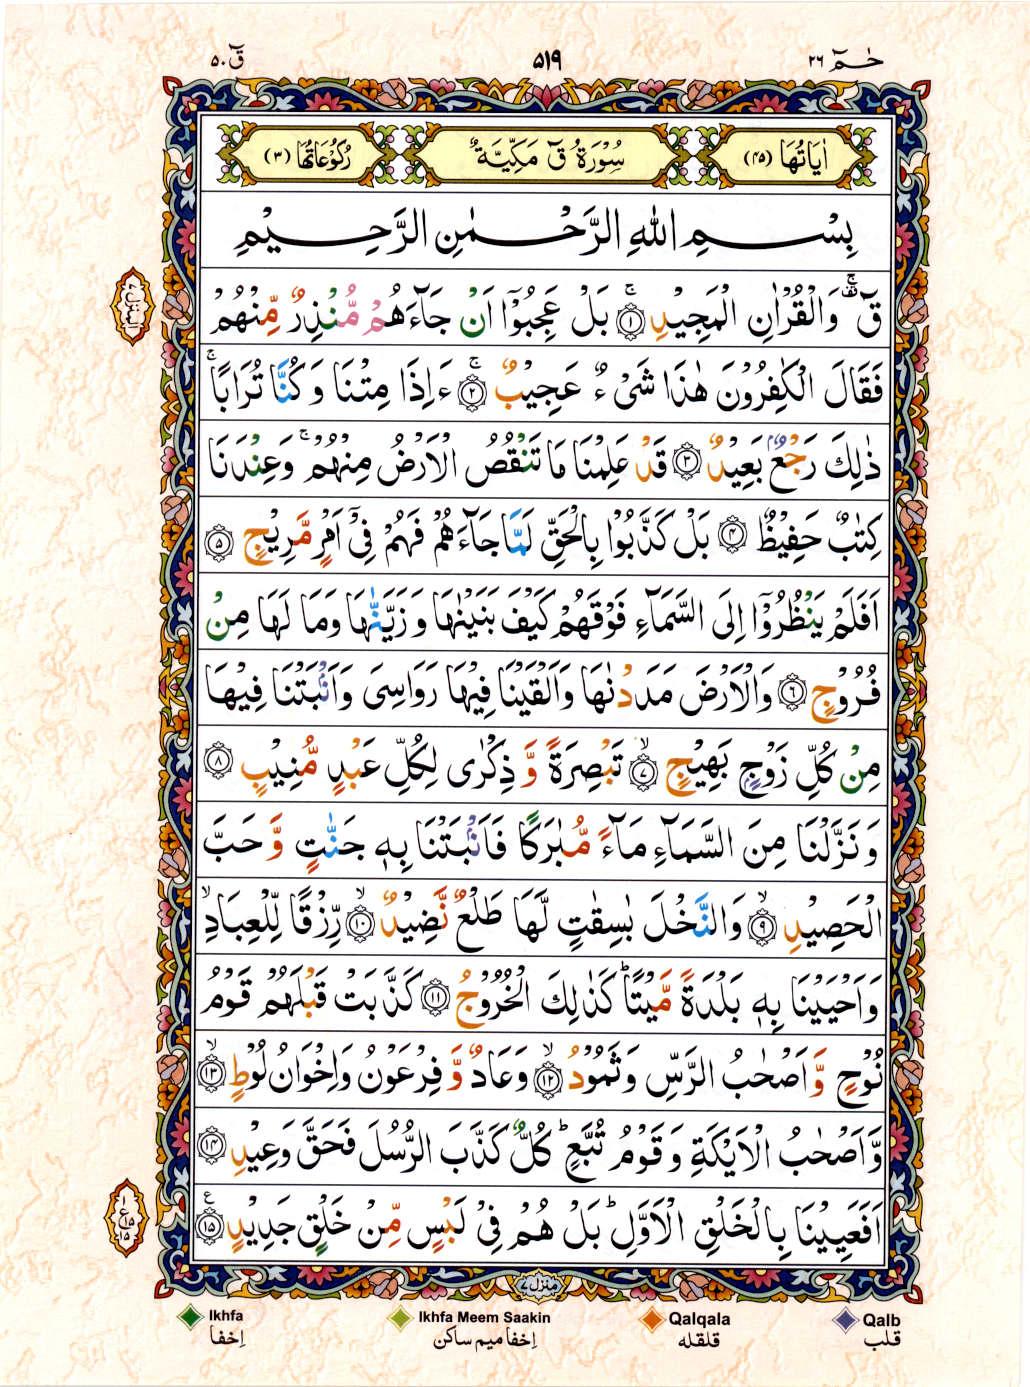 حٰمٓ ٢٦
٥١٩
قٓ ٥٠
اٰيَاتُهَا (٤٥)
سُوْرَةُ قٓ مَكِّيَّةٌ
رُكُوْعَاتُهَا (٣)
بِسْمِ اللّٰهِ الرَّحْمٰنِ الرَّحِيْمِ
قٓ ۚ وَالْقُرْاٰنِ الْمَجِيْدِ ۚ ﴿١﴾ بَلْ عَجِبُوْۤا اَنْ جَآءَهُمْ مُّنْذِرٌ مِّنْهُمْ
فَقَالَ الْكٰفِرُوْنَ هٰذَا شَیْءٌ عَجِيْبٌ ۚ ﴿٢﴾ ءَاِذَا مِتْنَا وَكُنَّا تُرَابًا ۚ
ذٰلِكَ رَجْعٌۢ بَعِيْدٌ ﴿٣﴾ قَدْ عَلِمْنَا مَا تَنْقُصُ الْاَرْضُ مِنْهُمْ ۚ وَعِنْدَنَا
كِتٰبٌ حَفِيْظٌ ﴿٤﴾ بَلْ كَذَّبُوْا بِالْحَقِّ لَمَّا جَآءَهُمْ فَهُمْ فِیْۤ اَمْرٍ مَّرِيْجٍ ﴿٥﴾
اَفَلَمْ يَنْظُرُوْۤا اِلَی السَّمَآءِ فَوْقَهُمْ كَيْفَ بَنَيْنٰهَا وَزَيَّنّٰهَا وَمَا لَهَا مِنْ
فُرُوْجٍ ﴿٦﴾ وَالْاَرْضَ مَدَدْنٰهَا وَاَلْقَيْنَا فِيْهَا رَوَاسِیَ وَاَنْۢبَتْنَا فِيْهَا
مِنْ كُلِّ زَوْجٍۭ بَهِيْجٍ ۙ ﴿٧﴾ تَبْصِرَةً وَّ ذِكْرٰی لِكُلِّ عَبْدٍ مُّنِيْبٍ ﴿٨﴾
وَنَزَّلْنَا مِنَ السَّمَآءِ مَآءً مُّبٰرَكًا فَاَنْۢبَتْنَا بِهٖ جَنّٰتٍ وَّ حَبَّ
الْحَصِيْدِ ۙ ﴿٩﴾ وَالنَّخْلَ بٰسِقٰتٍ لَّهَا طَلْعٌ نَّضِيْدٌ ۙ ﴿١٠﴾ رِّزْقًا لِّلْعِبَادِ ۙ
وَاَحْيَيْنَا بِهٖ بَلْدَةً مَّيْتًا ؕ كَذٰلِكَ الْخُرُوْجُ ﴿١١﴾ كَذَّبَتْ قَبْلَهُمْ قَوْمُ
نُوْحٍ وَّاَصْحٰبُ الرَّسِّ وَثَمُوْدُ ۙ ﴿١٢﴾ وَعَادٌ وَّ فِرْعَوْنُ وَاِخْوَانُ لُوْطٍ ۙ ﴿١٣﴾
وَّاَصْحٰبُ الْاَيْكَةِ وَقَوْمُ تُبَّعٍ ؕ كُلٌّ كَذَّبَ الرُّسُلَ فَحَقَّ وَعِيْدِ ﴿١٤﴾
اَفَعَيِيْنَا بِالْخَلْقِ الْاَوَّلِ ؕ بَلْ هُمْ فِیْ لَبْسٍ مِّنْ خَلْقٍ جَدِيْدٍ ﴿١٥﴾
المنزل ٧
١
ع
١٥
١٥
منزل ٧
Ikhfa
اِخفا
Ikhfa Meem Saakin
اِخفا میم ساکن
Qalqala
قلقله
Qalb
قلب